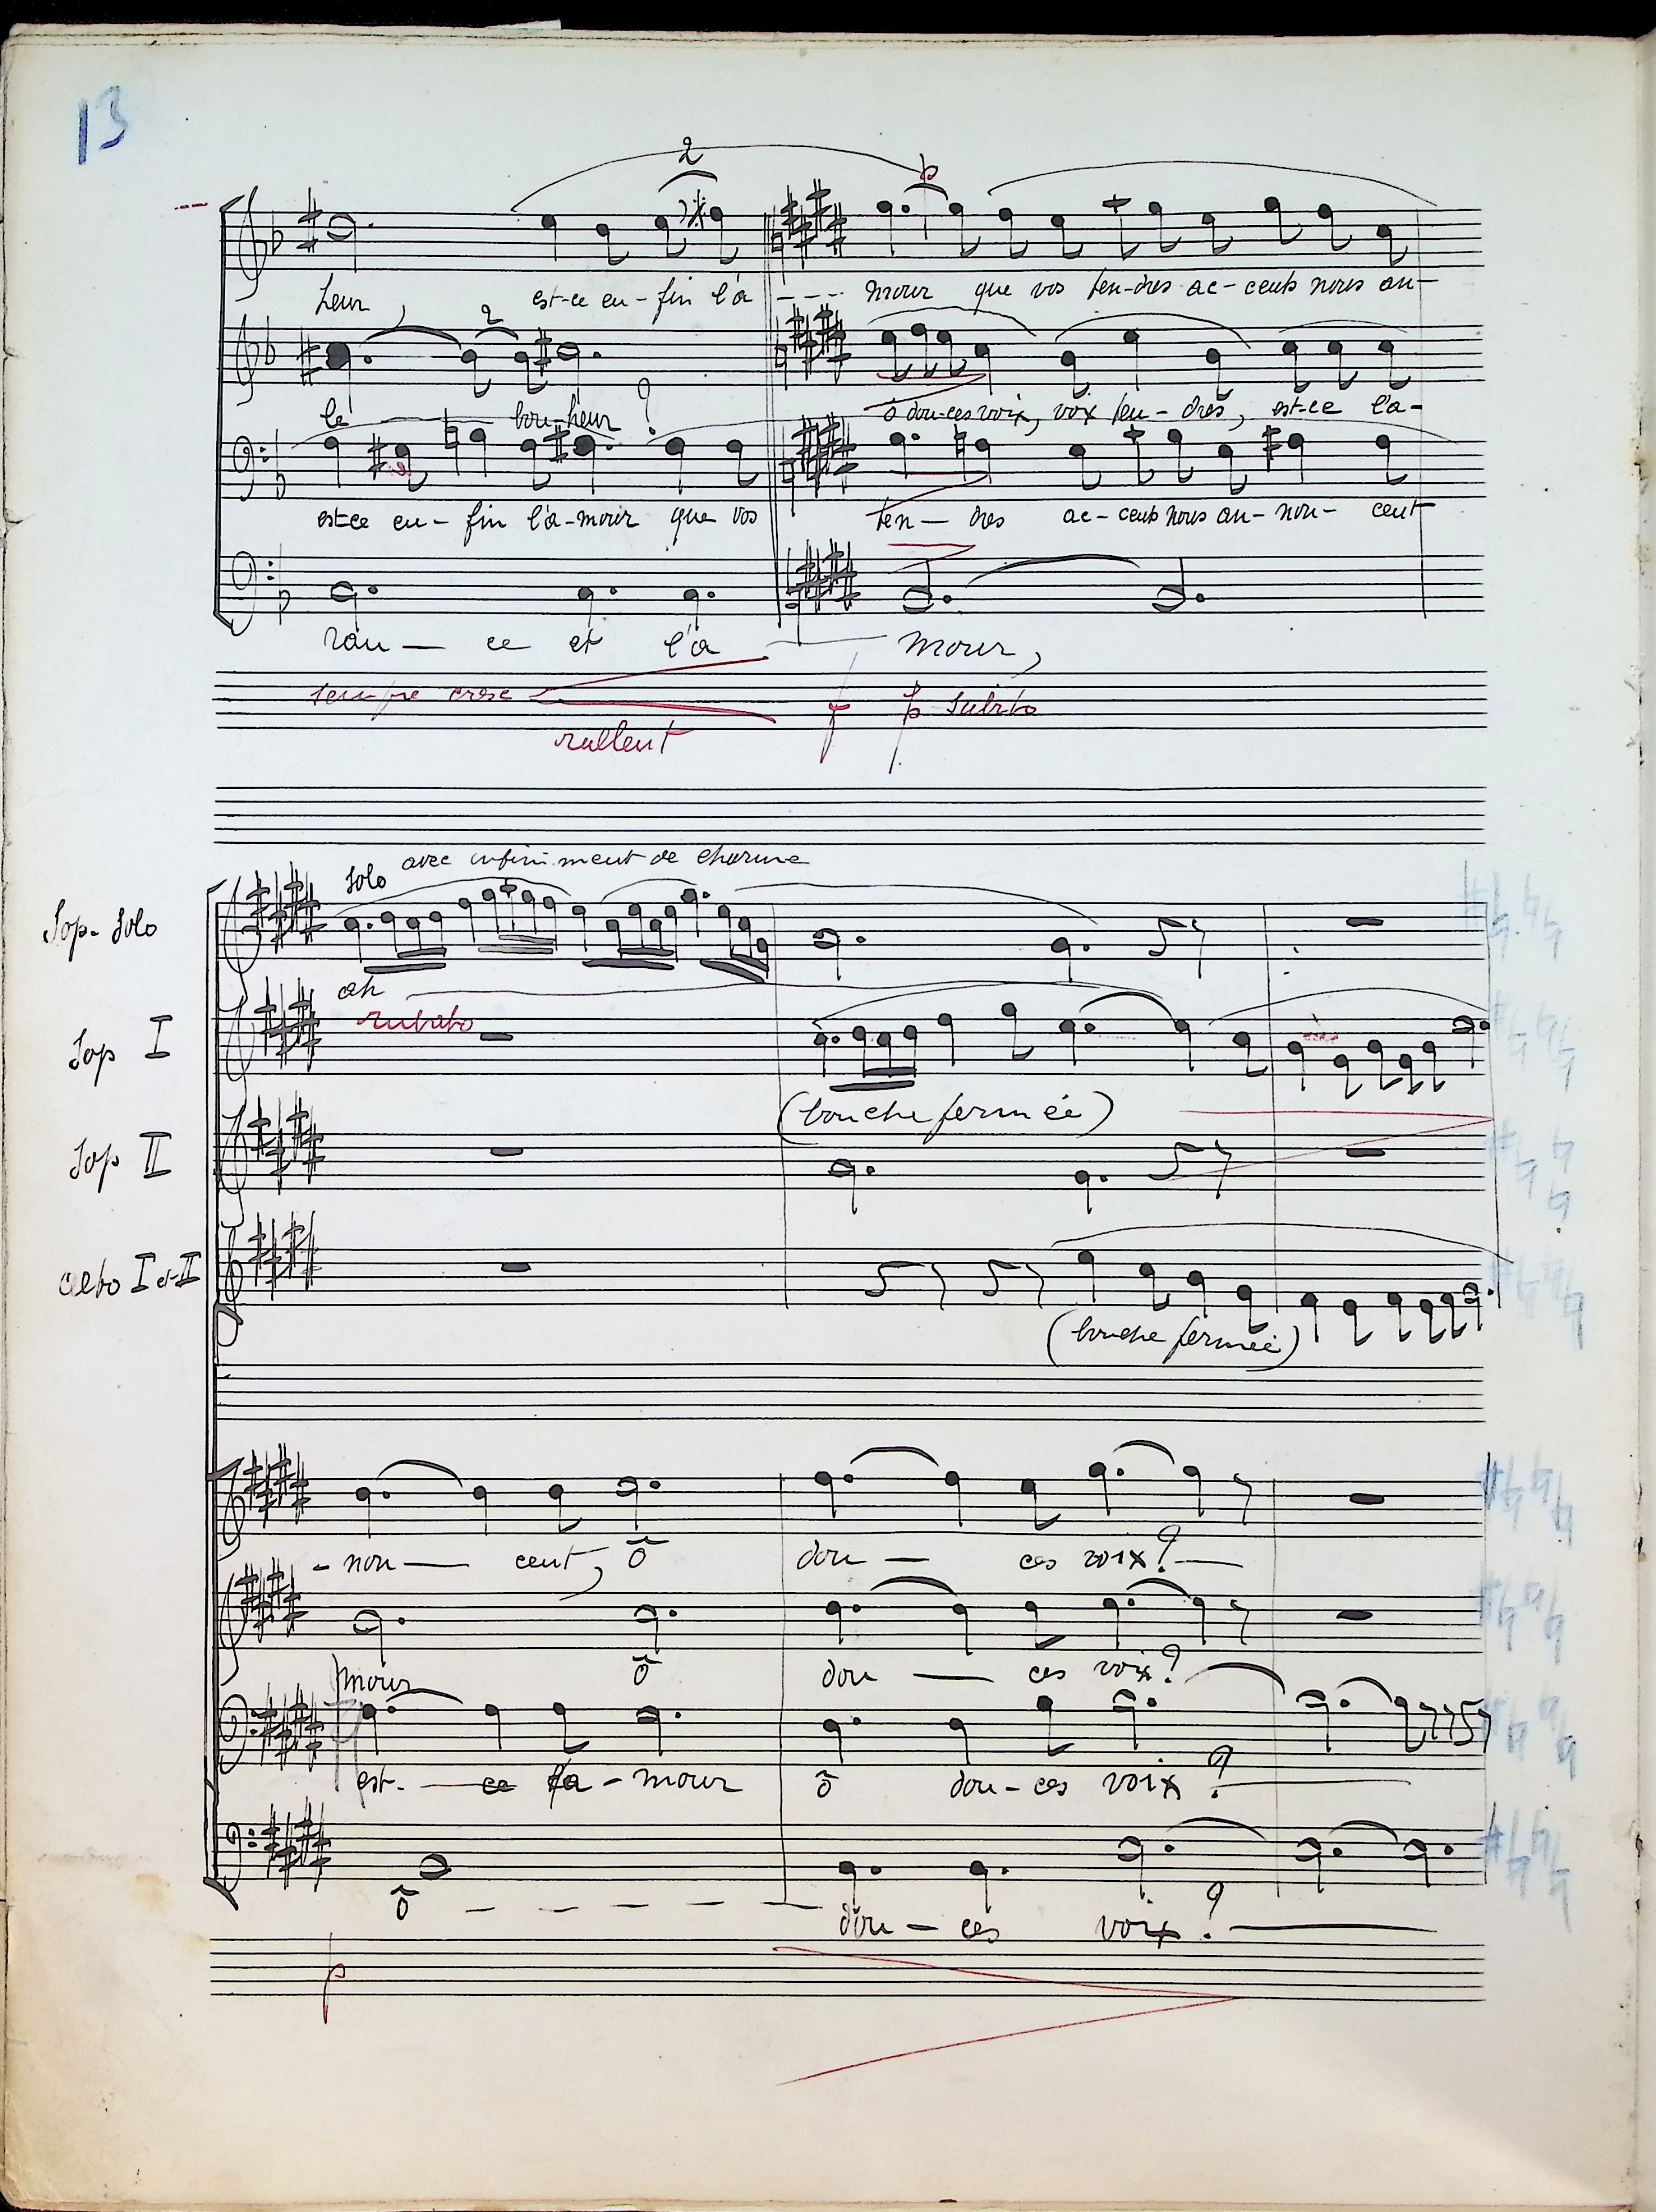 13
2
p
heur, est-ce en-fin l'a --- mour que vos ten-dres ac-cents nous an-
2
le bon-heur ? ô dou-ces voix, voix ten-dres, est-ce l'a-
est-ce en-fin l'a-mour que vos ten-dres ac-cents nous an-non-cent
ran-ce et l'a mour,
sempre cresc f p subito
rallent
solo avec infiniment de charme
Sop-Solo
ah
rubato
Sop I
(bouche fermée)
Sop II
alto I et II
(bouche fermée)
-non-cent, ô dou-ces voix?
mour ô dou-ces voix?
est-ce l'a-mour ô dou-ces voix?
ô dou-ces voix?
p